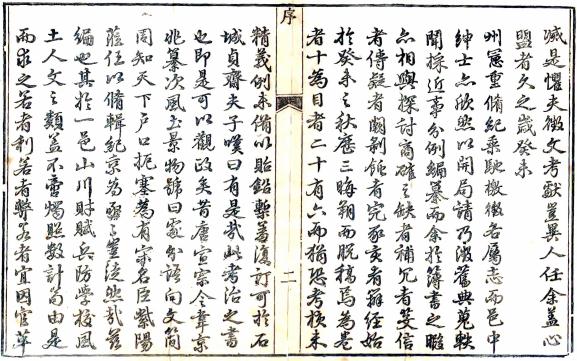 滅是懼夫徵文考獻豈異人任余蓋心
盟者久之歲癸未
州憲重脩紀乗馳檄徵各属志而邑中
紳士亦欣然以開局請乃溯舊典蒐軼
聞採近事分例編纂而余於簿書之暇
亦相與探討商確之缺者補冗者芟信
者傳疑者闕剝蝕者完豕亥者辨經始
於癸未之秋歷三晦朔而脫稿焉為卷
者十為目者二十有六而猶恐考核未
序
二
精義例未備以貽鉛槧羞復訂可於石
城貞齋夫子嘆曰有是哉此考治之書
也即是可以觀政矣昔唐宣宗令韋京
兆纂次風土景物號曰處分語向文簡
周知天下戶口扼塞為有宋名臣紫陽
蒞任以脩輯紀乗為亟亟豈徒然哉茲
編也其於一邑山川財賦兵防學校風
土人文之類蓋不啻燭照數計而由是
而求之若者利若者弊若者宜因宜革